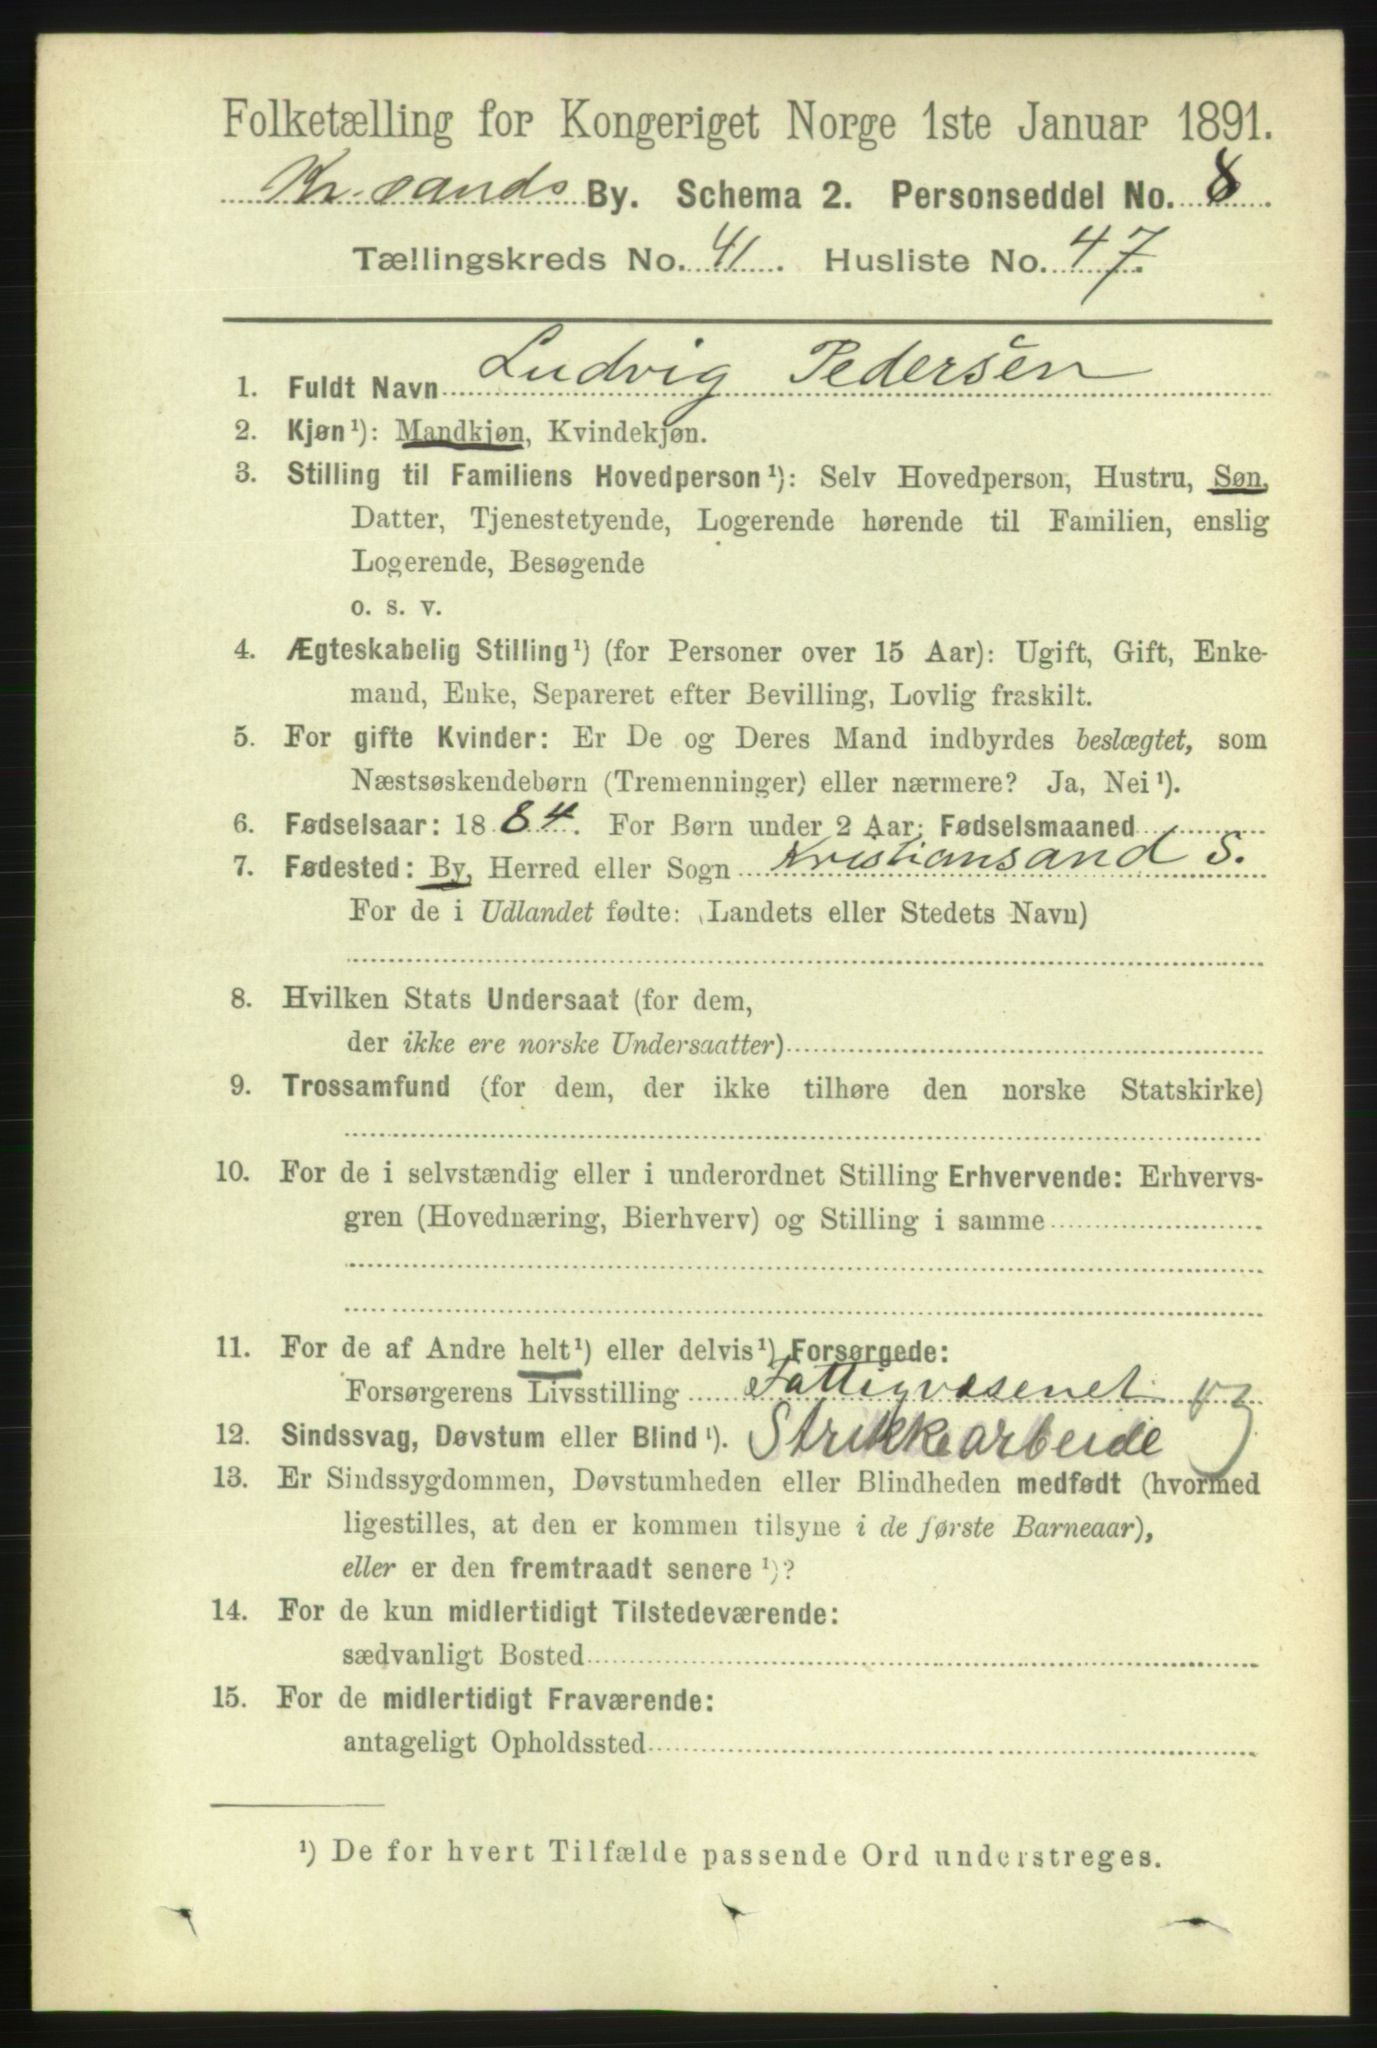 Folketælling for Kongeriget Norge 1ste Januar 1891.
Kr.sands By. Schema 2. Personseddel No. 8.
Tællingskreds No. 41. Husliste No. 47.
1. Fuldt Navn Ludvig Pedersen
2. Kjøn¹): Mandkjøn, Kvindekjøn.
3. Stilling til Familiens Hovedperson¹): Selv Hovedperson, Hustru, Søn,
Datter, Tjenestetyende, Logerende hørende til Familien, enslig
Logerende, Besøgende
o. s. v.
4. Ægteskabelig Stilling¹) (for Personer over 15 Aar): Ugift, Gift, Enke-
mand, Enke, Separeret efter Bevilling, Lovlig fraskilt.
5. For gifte Kvinder: Er De og Deres Mand indbyrdes beslægtet, som
Næstsøskendebørn (Tremenninger) eller nærmere? Ja, Nei¹).
6. Fødselsaar: 1884. For Børn under 2 Aar: Fødselsmaaned
7. Fødested: By, Herred eller Sogn Kristiansand S.
For de i Udlandet fødte: (Landets eller Stedets Navn)
8. Hvilken Stats Undersaat (for dem,
der ikke ere norske Undersaatter)
9. Trossamfund (for dem, der ikke tilhøre den norske Statskirke)
10. For de i selvstændig eller i underordnet Stilling Erhvervende: Erhvervs-
gren (Hovednæring, Bierhverv) og Stilling i samme
11. For de af Andre helt¹) eller delvis¹) Forsørgede:
Forsørgerens Livsstilling Fattigvæsenet
12. Sindssvag, Døvstum eller Blind¹). Strikkearbeide
13. Er Sindssygdommen, Døvstumheden eller Blindheden medfødt (hvormed
ligestilles, at den er kommen tilsyne i de første Barneaar),
eller er den fremtraadt senere¹)?
14. For de kun midlertidigt Tilstedeværende:
sædvanligt Bosted
15. For de midlertidigt Fraværende:
antageligt Opholdssted
¹) De for hvert Tilfælde passende Ord understreges.